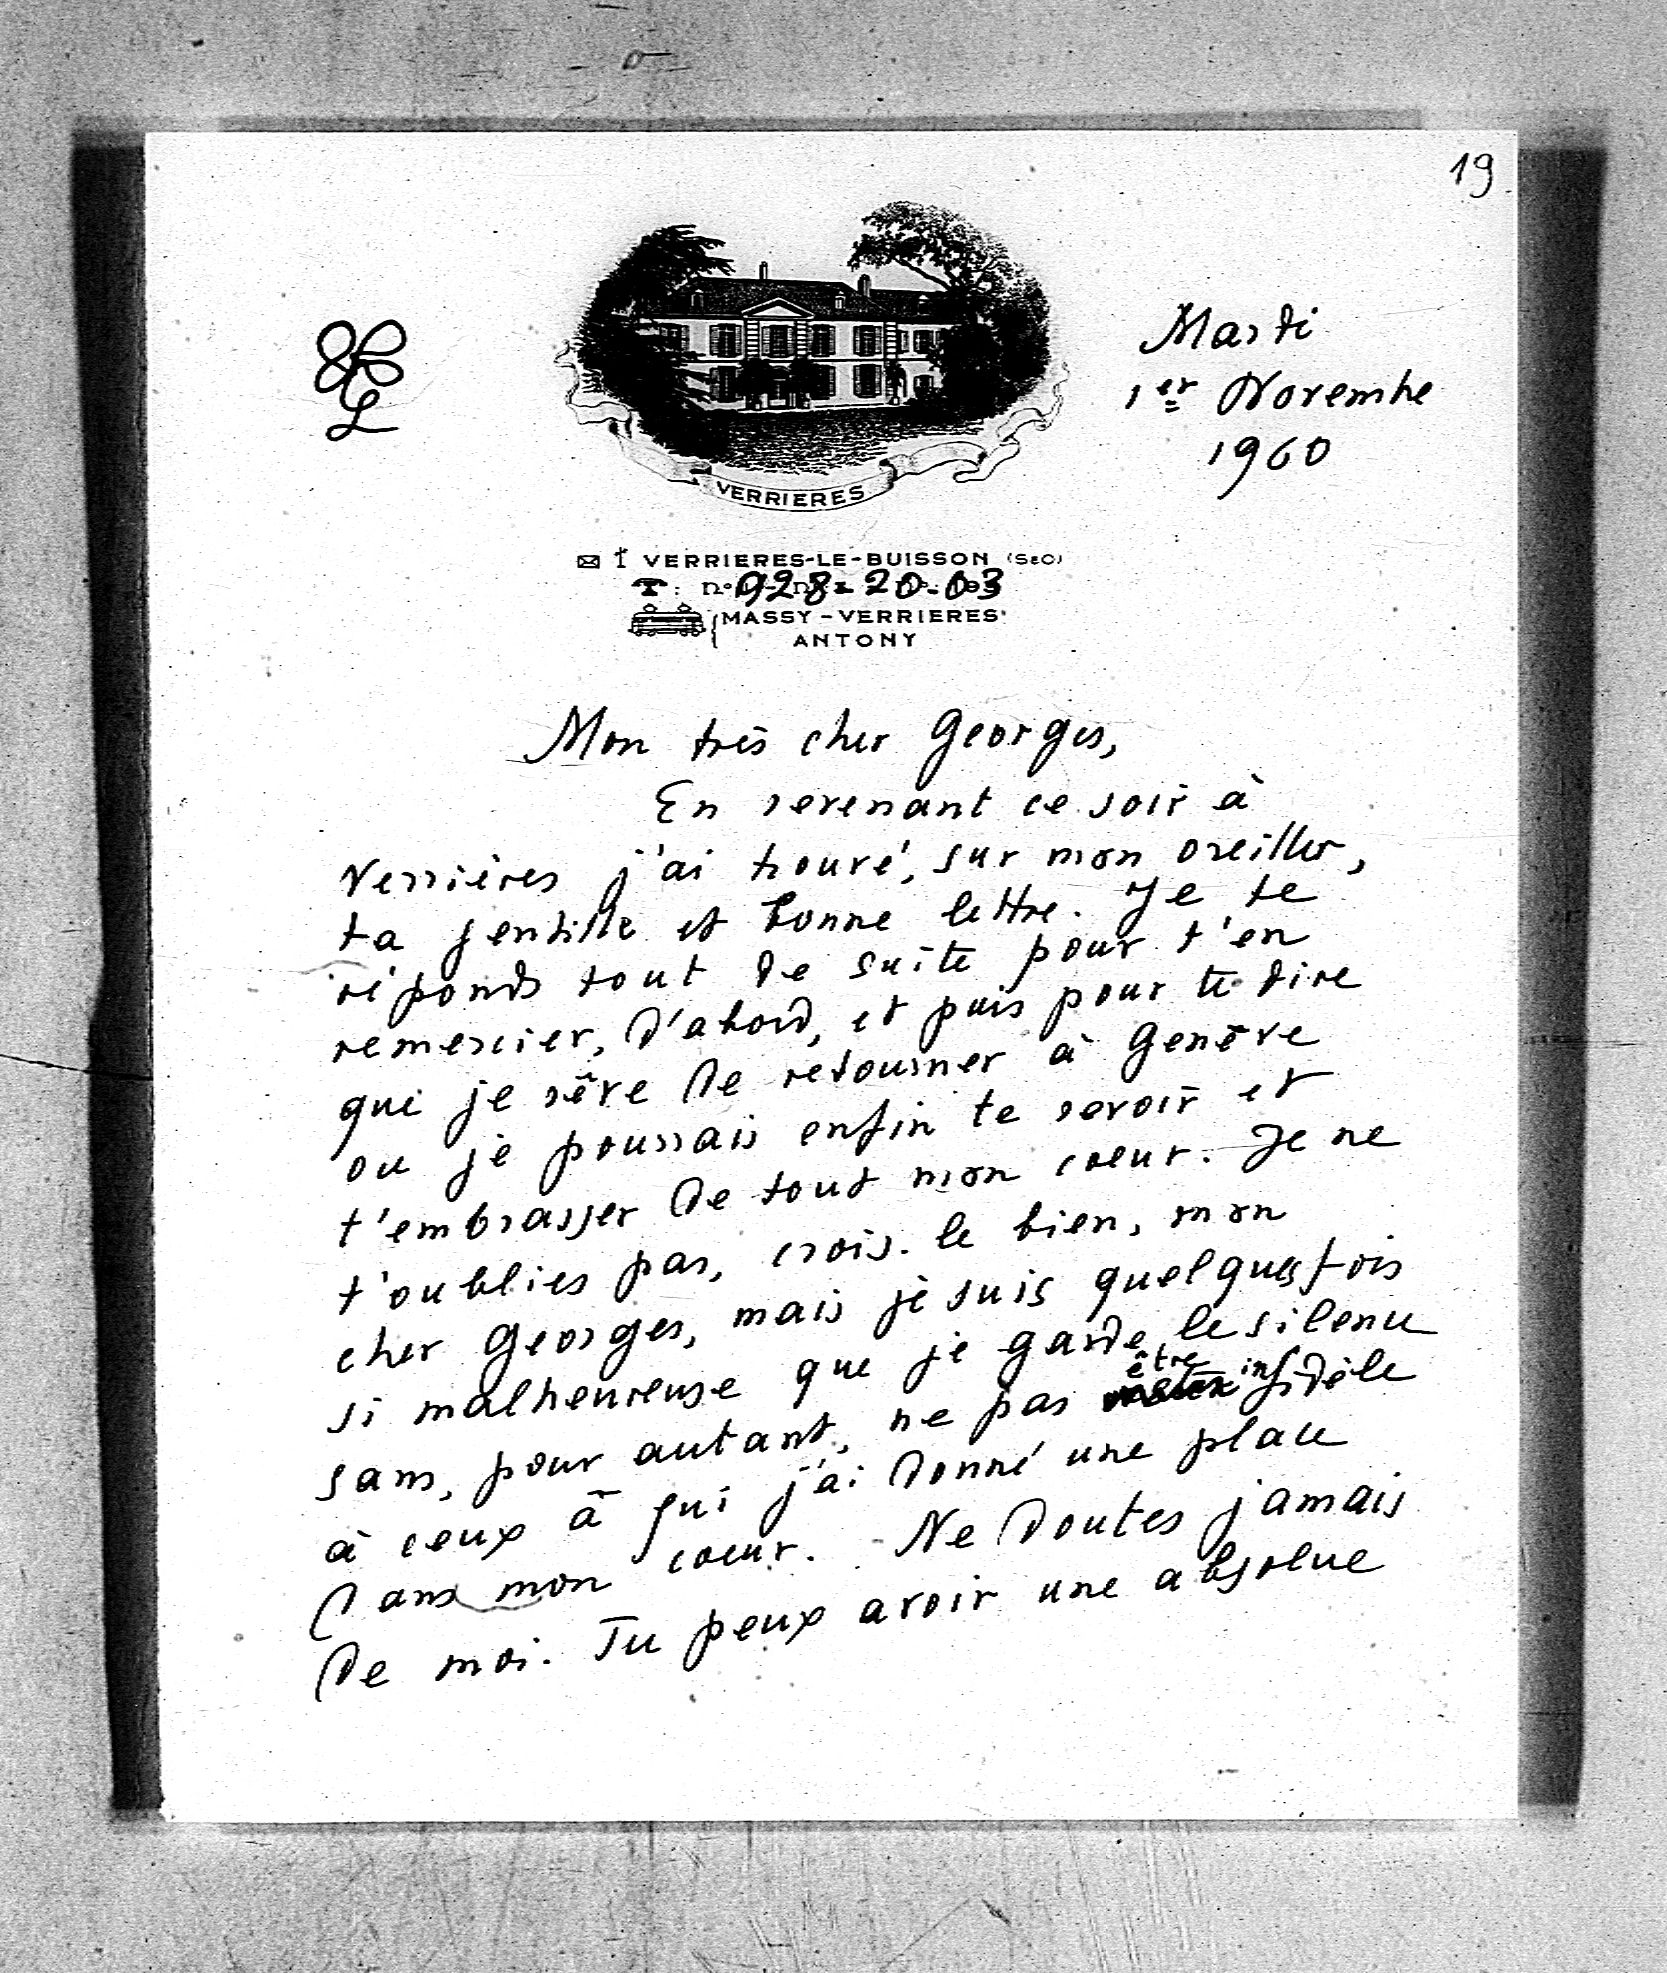 19
Mardi
1er Novembre
1960
L
VERRIERES
VERRIERES-LE-BUISSON (S&O)
: n° 928-20-03
MASSY-VERRIERES
ANTONY
Mon très cher Georges,
En revenant ce soir à
Verrières j'ai trouvé, sur mon oreiller,
ta gentille et bonne lettre. Je te
réponds tout de suite pour t'en
remercier, d'abord, et puis pour te dire
que je rêve de retourner à Genève
ou je pourrais enfin te revoir et
t'embrasser de tout mon coeur. Je ne
t'oublies pas, crois-le bien, mon
cher Georges, mais je suis quelquesfois
si malheureuse que je garde le silence
sans, pour autant, ne pas être infidèle
à ceux à qui j'ai donné une place
dans mon coeur. Ne doutes jamais
de moi. Tu peux avoir une absolue